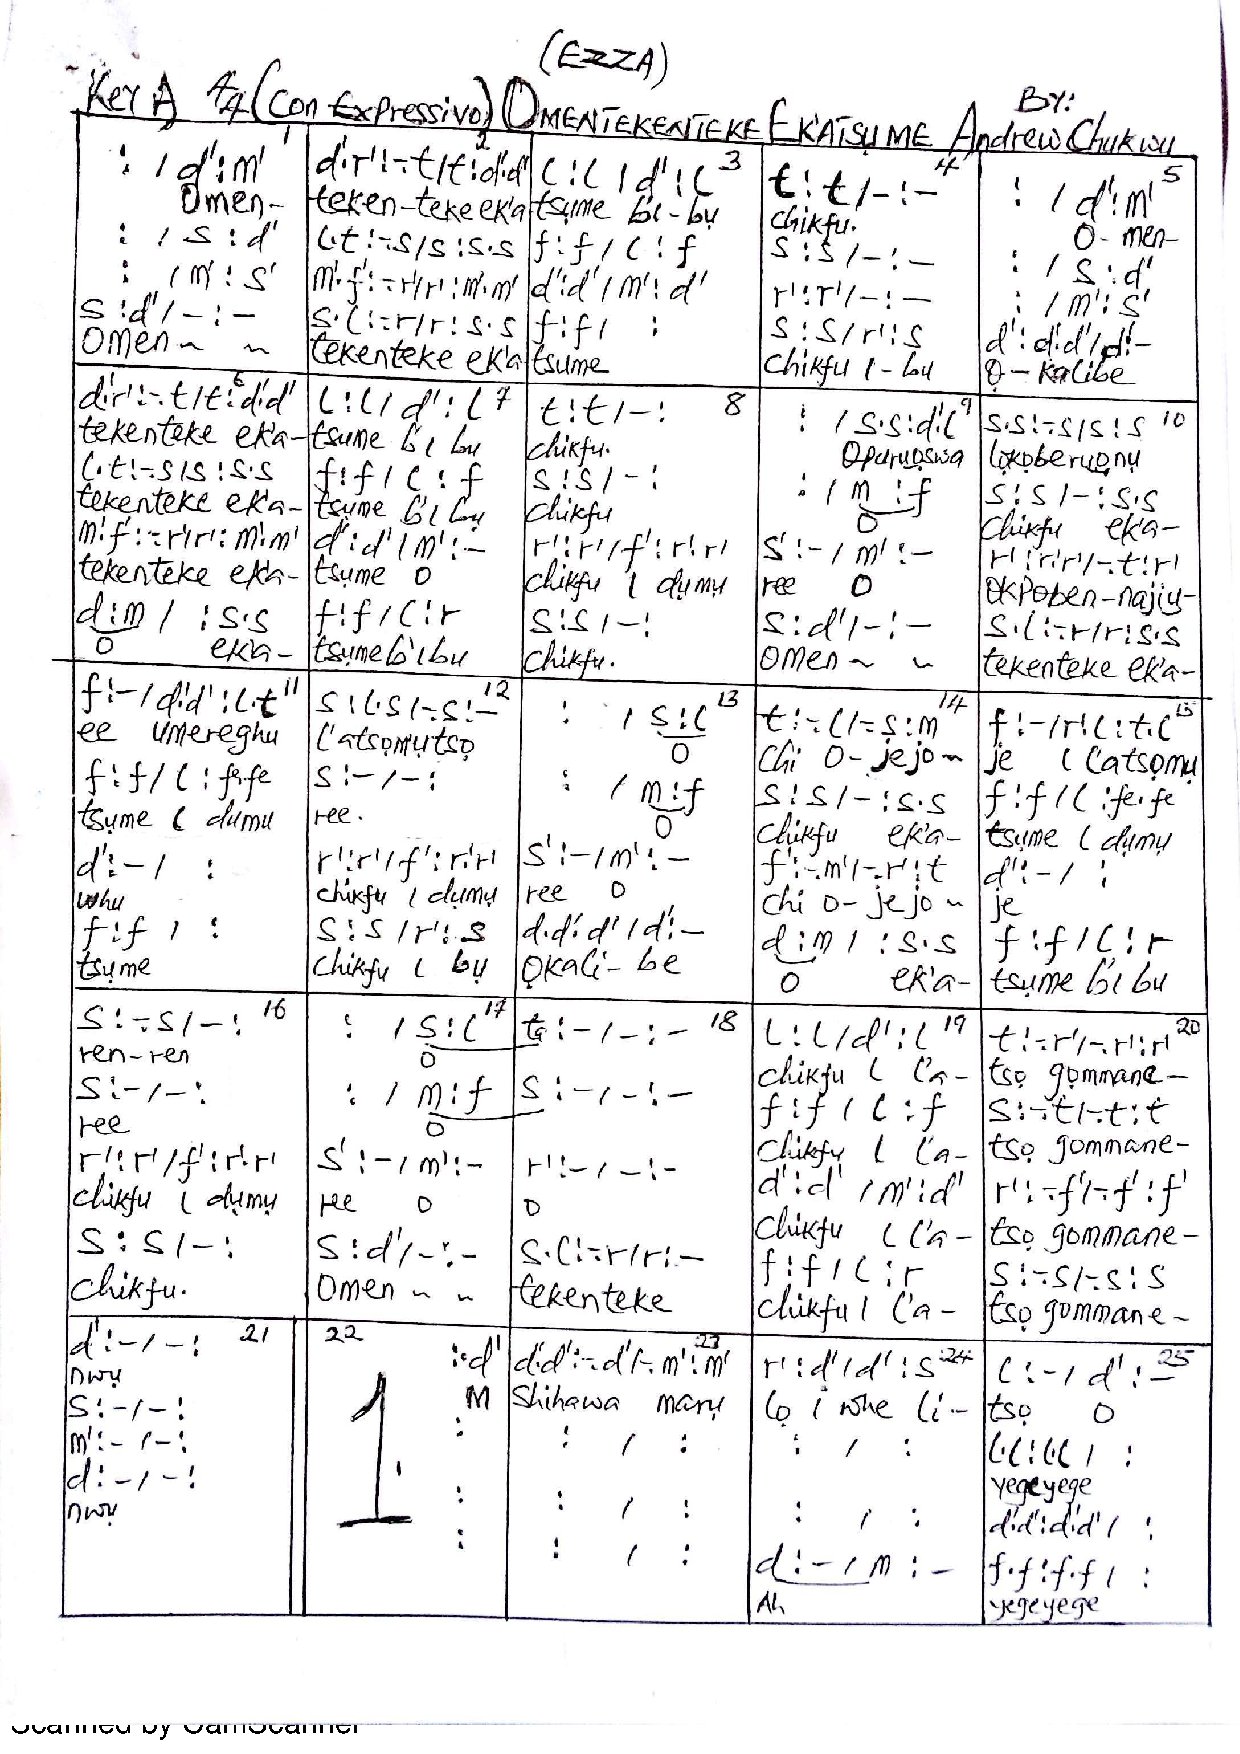 (EZZA)
Key A 4/4 (Con Expressivo) OMENTEKENTEKE EK'ATSỤME BY: Andrew Chukwu
1
: / d':m'
Omen-
: / s:d'
: / m':s'
s:d'/-:-
Omen ~ ~
2
d'.r':-.t/t:d'.d'
teken-teke eka
l.t:-.s/s:s.s
m'.f':-.r'/r':m'.m'
s.l:-.r/r:s.s
tekenteke eka
3
l:l/d':l
tsụme b'i-bụ
f:f/l:f
d':d'/m':d'
f:f/ :
tsume
4
t:t/-:-
chikfu.
s:s/-:-
r':r'/-:-
s:s/r':s
chikfu l-bu
5
: / d':m'
O-men-
: / s:d'
: / m':s'
d':d'.d'/d':-
Ọ-kalibe
6
d'.r':-.t/t:d'.d'
tekenteke eka-
l.t:-.s/s:s.s
tekenteke eka-
m'.f':-.r'/r':m'.m'
tekenteke eka-
d:m/ :s.s
O eka-
7
l:l/d':l
tsụme b'i bụ
f:f/l:f
tsụme b'i bụ
d':d'/m':-
tsụme O
f:f/l:r
tsụme b'i bu
8
t:t/-:
chikfu.
s:s/-:
chikfu
r':r'/f':r'.r'
chikfu l dụmụ
s:s/-:
chikfu.
9
: /s.s:d'.l
Opuruọswa
: /m:f
O
s':-/m':-
ree O
s:d'/-:-
Omen ~ ~
10
s.s:-.s/s:s
lọkọberuọnụ
s:s/-:s.s
chikfu eka-
r':r'.r'/-.t:r'
Okpoben-najiy-
s.l:-.r/r:s.s
tekenteke eka-
11
f:-/d'.d':l.t
ee umereghu
f:f/l:fe.fe
tsụme l dumu
d':-/ :
whu
f:f/ :
tsụme
12
s:l.s/-.s:-
l'atsọmụtsọ
s:-/-:
ree.
r':r'/f':r'.r'
chikfu l dụmụ
s:s/r':s
chikfu l bụ
13
: /s:l
O
: /m:f
O
s':-/m':-
ree O
d.d':d'/d':-
Ọkali-be
14
t:-.l/-.s:m
chi O-jejo~
s:s/-:s.s
chikfu eka-
f':-.m'/-.r':t
chi o-jejo~
d:m/ :s.s
O eka-
15
f:-/r':l:t.l
je l l'atsọmụ
f:f/l:fe.fe
tsụme l dụmụ
d':-/ :
je
f:f/l:r
tsụme b'i bu
16
s:-.s/-:
ren-ren
s:-/-:
ree
r':r'/f':r'.r'
chikfu l dụmụ
s:s/-:
chikfu.
17
: /s:l
O
: /m:f
O
s':-/m':-
ree O
s:d'/-:-
Omen ~ ~
18
:-/-:-
s:-/-:-
r':-/-:-
O
s.l:-.r/r:-
tekenteke
19
l:l/d':l
chikfu l l'a-
f:f/l:f
chikfu l l'a-
d':d'/m':d'
chikfu l l'a-
f:f/l:r
chikfu l l'a-
20
t:-.r'/-.r':r'
tsọ gọmmane-
s:-.t/-.t:t
tsọ gommane-
r':-.f'/-.f':f'
tsọ gommane-
s:-.s/-.s:s
tsọ gommane-
21
d':-/-:
nwụ
s:-/-:
m':-/-:
d:-/-:
nwụ
22
1
:.d'
M
:
:
:
23
d'.d':-.d'/-.m':m'
Shihawa marụ
: / :
: / :
: / :
24
r':d'/d':s
lọ i whe li-
: / :
: / :
d:-/m:-
Ah
25
l:-/d':-
tsọ O
l.l:l.l/ :
yegeyege
d'.d':d'.d'/ :
f.f:f.f/ :
yegeyege
Scanned by CamScanner